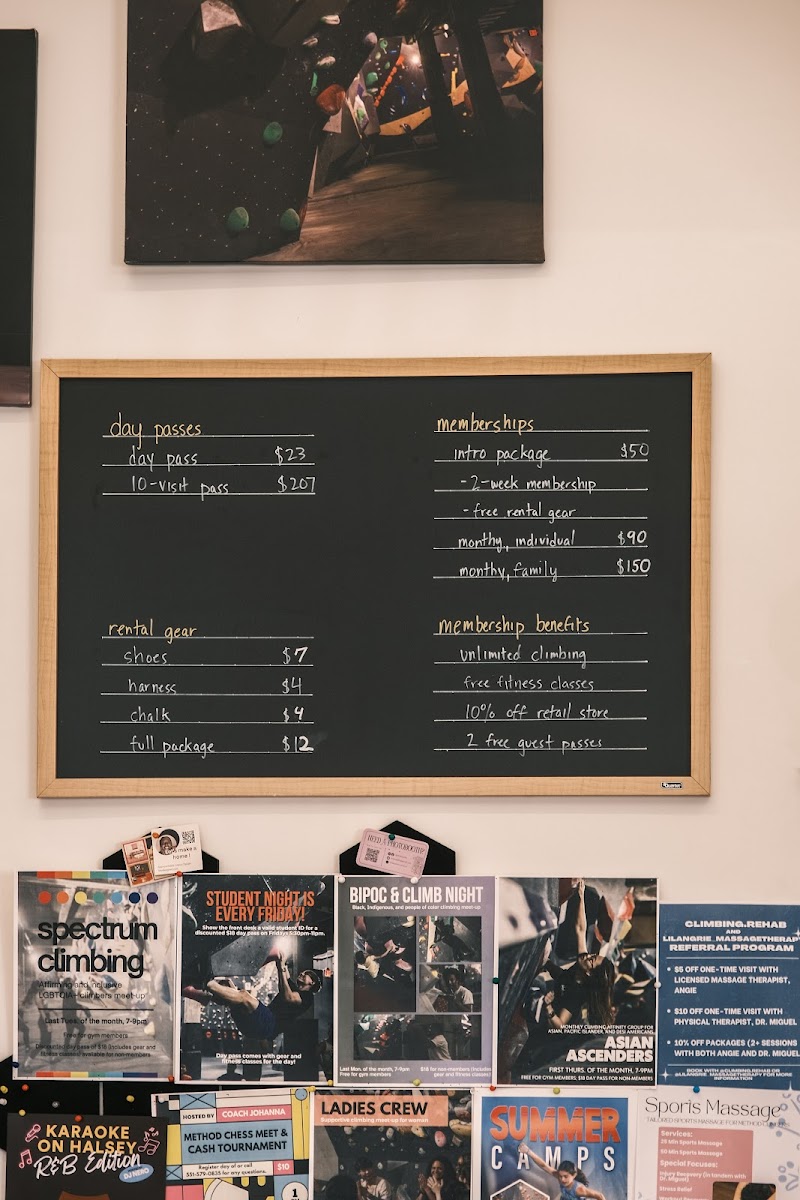 day passes
day pass $23
10-visit pass $207
memberships
intro package $50
-2-week membership
-free rental gear
monthy, individual $90
monthy, family $150
rental gear
shoes $7
harness $4
chalk $4
full package $12
membership benefits
unlimited climbing
free fitness classes
10% off retail store
2 free guest passes
NEED A PHOTOBOOTH?
spectrum
climbing
Affirming and inclusive
LGBTQIA+ climbers meet-up
Last Tues. of the month, 7-9pm
Free for gym members
Discounted day pass of $18 (includes gear and
fitness classes) available for non-members
STUDENT NIGHT IS
EVERY FRIDAY!
Show the front desk a valid student ID for a
discounted $10 day pass on Fridays 5:30pm-11pm.
Day pass comes with gear and
fitness classes for the day!
BIPOC & CLIMB NIGHT
Black, Indigenous, and people of color climbing meet-up
Last Mon. of the month, 7-9pm
Free for gym members
$18 for non-members (includes
gear and fitness classes)
MONTHLY CLIMBING AFFINITY GROUP FOR
ASIAN, PACIFIC ISLANDER, AND DESI AMERICANS
ASIAN
ASCENDERS
FIRST THURS. OF THE MONTH, 7-9PM
FREE FOR GYM MEMBERS, $18 DAY PASS FOR NON-MEMBERS
CLIMBING.REHAB
AND
LILANGRIE_MASSAGETHERAP
REFERRAL PROGRAM
$5 OFF ONE-TIME VISIT WITH
LICENSED MASSAGE THERAPIST,
ANGIE
$10 OFF ONE-TIME VISIT WITH
PHYSICAL THERAPIST, DR. MIGUEL
10% OFF PACKAGES (2+ SESSIONS
WITH BOTH ANGIE AND DR. MIGUEL
BOOK WITH @CLIMBING.REHAB OR
@LILANGRIE_MASSAGETHERAPY FOR MORE
INFORMATION
KARAOKE
ON HALSEY
R&B Edition
DJ NERO
HOSTED BY COACH JOHANNA
METHOD CHESS MEET &
CASH TOURNAMENT
Register day of or call
551-579-0835 for any questions.
$10
LADIES CREW
Supportive climbing meet up for women
SUMMER
CAMPS
Sports Massage
TAILORED SPORTS MASSAGE FOR METHOD
Services:
25 Min Sports Massage
50 Min Sports Massage
Special Focuses:
Injury Recovery (in tandem with
Dr. Miguel)
Stress Relief